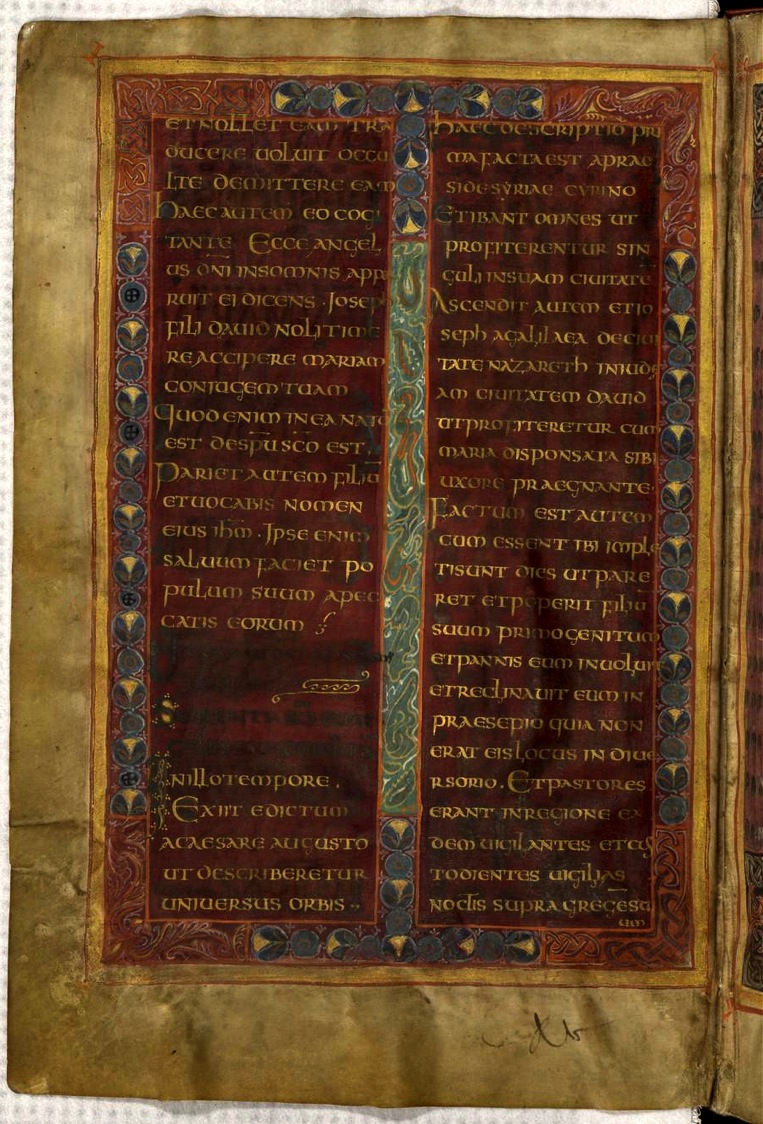 ETNOLLET EAM TRA
DUCERE UOLUIT OCCU
LTE DEMITTERE EAM
HAEC AUTEM EO COGI
TANTE Ecce ANGEL
US DNI INSOMNIS APP
RUIT EI DICENS · JOSEPH
FILI DAUID NOLI TIME
RE ACCIPERE MARIAM
CONIUGEM TUAM
QUOD ENIM IN EA NAT
EST DE SPU SCO EST.
PARIET AUTEM FILIU
ET UOCABIS NOMEN
EIUS IHM · IPSE ENIM
SALUUM FACIET PO
PULUM SUUM A PEC
CATIS EORUM
IN ILLO TEMPORE.
EXIIT EDICTUM
A CAESARE AUGUSTO
UT DESCRIBERETUR
UNIUERSUS ORBIS
HAEC DESCRIPTIO PRI
MA FACTA EST A PRAE
SIDE SYRIAE CYRINO
ET IBANT OMNES UT
PROFITERENTUR SIN
GULI IN SUAM CIUITATE
ASCENDIT AUTEM ET IO
SEPH A GALILAEA DE CIUI
TATE NAZARETH IN IUDE
AM CIUITATEM DAUID
UT PROFITERETUR CUM
MARIA DISPONSATA SIBI
UXORE PRAEGNANTE·
FACTUM EST AUTEM
CUM ESSENT IBI IMPLE
TI SUNT DIES UT PARE
RET ET PEPERIT FILIU
SUUM PRIMOGENITUM
ET PANNIS EUM INUOLUIT
ET RECLINAUIT EUM IN
PRAESEPIO QUIA NON
ERAT EIS LOCUS IN DIUE
RSORIO. ET PASTORES
ERANT IN REGIONE EA
DEM UIGILANTES ET CUS
TODIENTES UIGILIAS
NOCTIS SUPRA GREGE SU
UM